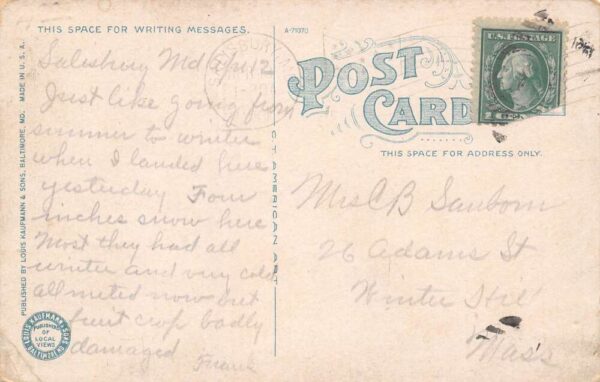 THIS SPACE FOR WRITING MESSAGES.
A-71970
POST
CARD
THIS SPACE FOR ADDRESS ONLY.
U.S. POSTAGE
Salisbury Md Apr 12
Just like going from
summer to winter
when I landed here
yesterday Four
inches snow here
Most they had all
winter and very cold
all melted now but
fruit crop badly
damaged
Frank
Mrs C B Sanborn
26 Adams St
Winter Hil
Mass
PUBLISHED BY LOUIS KAUFMANN & SONS, BALTIMORE, MD. MADE IN U.S.A.
LOUIS KAUFMANN & SONS
BALTIMORE, MD.
PUBLISHERS
OF
LOCAL
VIEWS